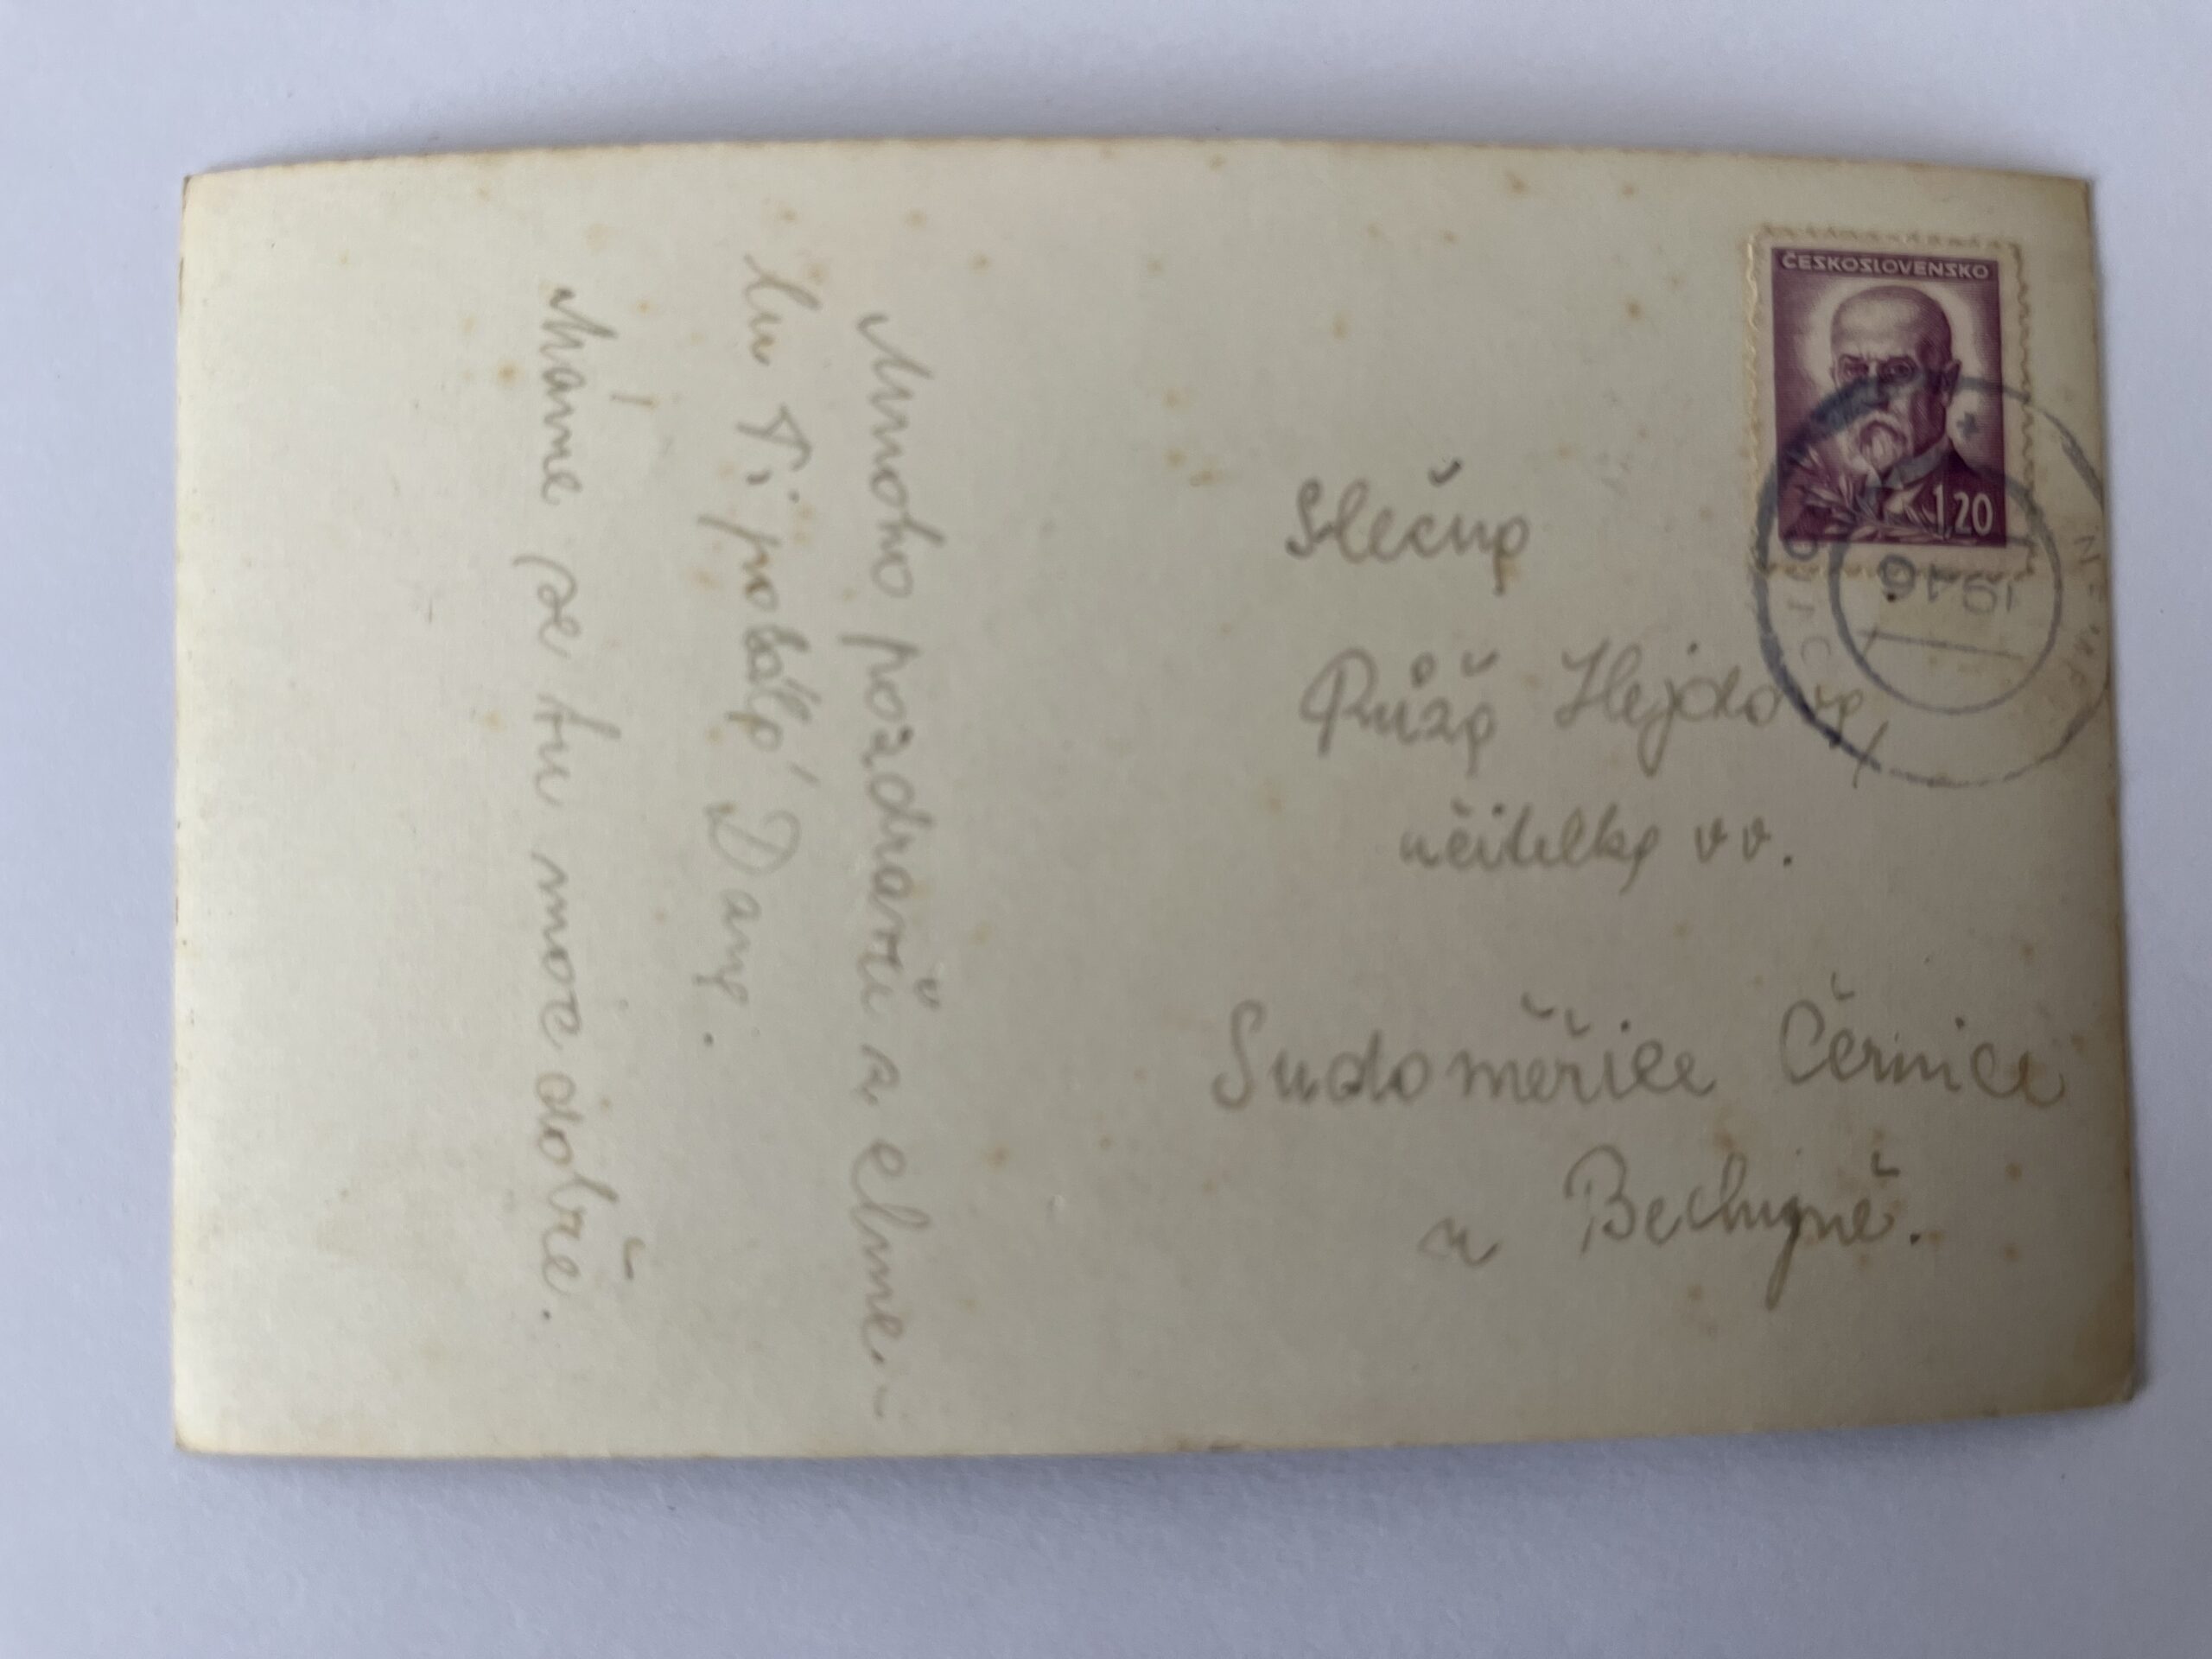 Mnoho pozdravů a chme-
lu Ti posílá Dany.
Máme se tu moc dobře.
ČESKOSLOVENSKO
1,20
1946
Slečna
Růža Hejdová,
učitelka v v.
Sudoměřice Černice
u Bechyně.